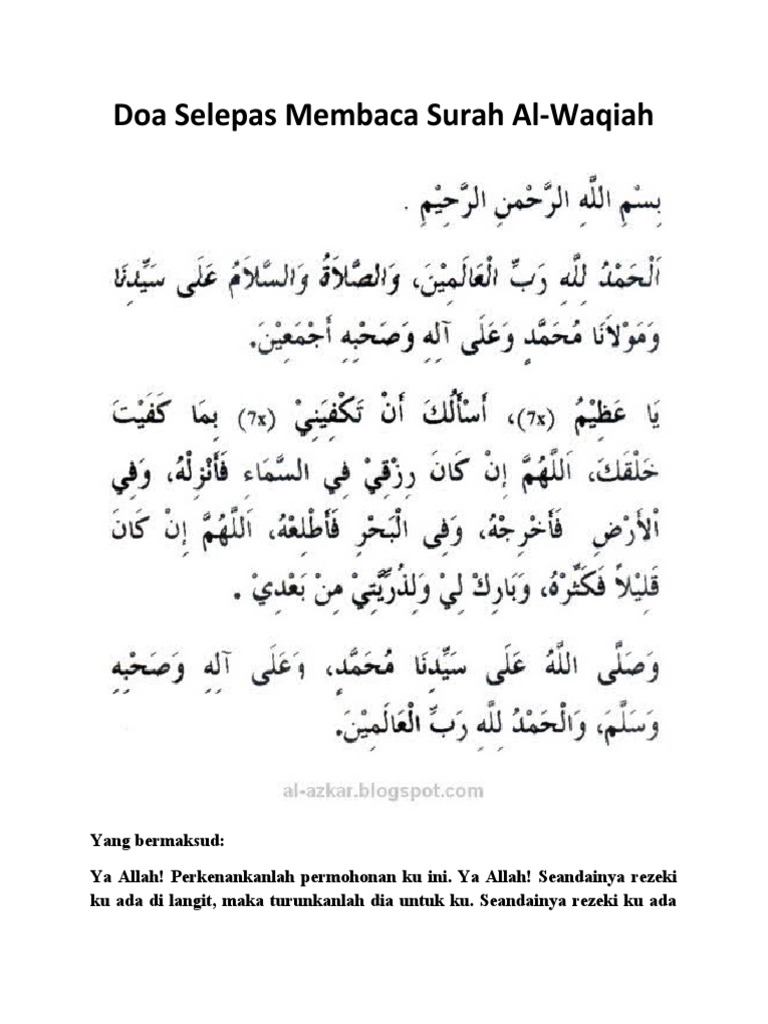 Doa Selepas Membaca Surah Al-Waqiah
بِسْمِ اللَّهِ الرَّحْمنِ الرَّحِيْمِ .
اَلْحَمْدُ لِلَّهِ رَبِّ الْعَالَمِيْنَ، وَالصَّلاَةُ وَالسَّلاَمُ عَلَى سَيِّدِنَا
وَمَوْلاَنَا مُحَمَّدٍ وَعَلَى آلِهِ وَصَحْبِهِ أَجْمَعِيْنَ.
يَا عَظِيْمُ (7x)، أَسْأَلُكَ أَنْ تَكْفِيَنِيْ (7x) بِمَا كَفَيْتَ
خَلْقَكَ، اَللَّهُمَّ إِنْ كَانَ رِزْقِيْ فِي السَّمَاءِ فَأَنْزِلْهُ، وَفِي
الْأَرْضِ فَأَخْرِجْهُ، وَفِى الْبَحْرِ فَأَطْلِعْهُ، اَللَّهُمَّ إِنْ كَانَ
قَلِيْلاً فَكَثِّرْهُ، وَبَارِكْ لِيْ وَلِذُرِّيَّتِيْ مِنْ بَعْدِيْ .
وَصَلَّى اللَّهُ عَلَى سَيِّدِنَا مُحَمَّدٍ، وَعَلَى آلِهِ وَصَحْبِهِ
وَسَلَّمَ، وَالْحَمْدُ لِلَّهِ رَبِّ الْعَالَمِيْنَ.
al-azkar.blogspot.com
Yang bermaksud:
Ya Allah! Perkenankanlah permohonan ku ini. Ya Allah! Seandainya rezeki
ku ada di langit, maka turunkanlah dia untuk ku. Seandainya rezeki ku ada